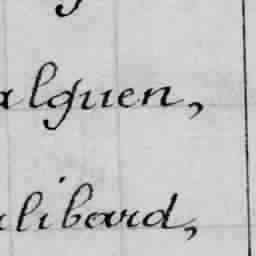 alguen,
alibard,